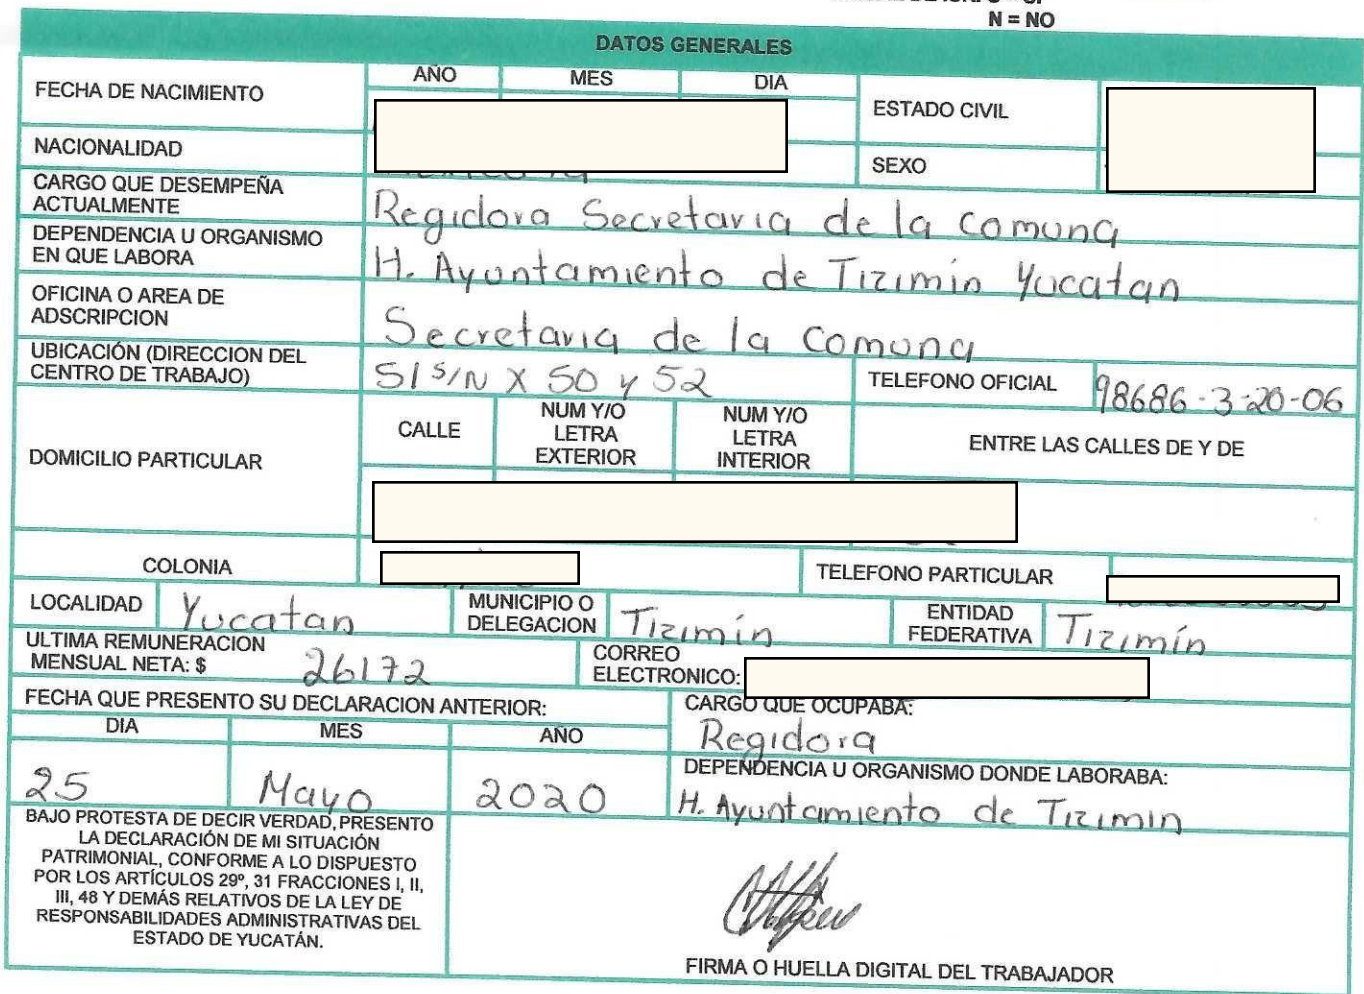 N = NO
DATOS GENERALES
FECHA DE NACIMIENTO
AÑO MES DIA
ESTADO CIVIL
NACIONALIDAD
SEXO
CARGO QUE DESEMPEÑA
ACTUALMENTE
Regidora Secretaria de la comuna
DEPENDENCIA U ORGANISMO
EN QUE LABORA
H. Ayuntamiento de Tizimín Yucatan
OFICINA O AREA DE
ADSCRIPCION
Secretaria de la Comuna
UBICACIÓN (DIRECCION DEL
CENTRO DE TRABAJO)
51 S/N X 50 y 52
TELEFONO OFICIAL
98686-3-20-06
DOMICILIO PARTICULAR
CALLE
NUM Y/O
LETRA
EXTERIOR
NUM Y/O
LETRA
INTERIOR
ENTRE LAS CALLES DE Y DE
COLONIA
TELEFONO PARTICULAR
LOCALIDAD
Yucatan
MUNICIPIO O
DELEGACION
Tizimín
ENTIDAD
FEDERATIVA
Tizimín
ULTIMA REMUNERACION
MENSUAL NETA: $ 26172
CORREO
ELECTRONICO:
FECHA QUE PRESENTO SU DECLARACION ANTERIOR:
DIA MES AÑO
25 Mayo 2020
CARGO QUE OCUPABA:
Regidora
DEPENDENCIA U ORGANISMO DONDE LABORABA:
H. Ayuntamiento de Tizimin
BAJO PROTESTA DE DECIR VERDAD, PRESENTO
LA DECLARACIÓN DE MI SITUACIÓN
PATRIMONIAL, CONFORME A LO DISPUESTO
POR LOS ARTÍCULOS 29º, 31 FRACCIONES I, II,
III, 48 Y DEMÁS RELATIVOS DE LA LEY DE
RESPONSABILIDADES ADMINISTRATIVAS DEL
ESTADO DE YUCATÁN.
FIRMA O HUELLA DIGITAL DEL TRABAJADOR